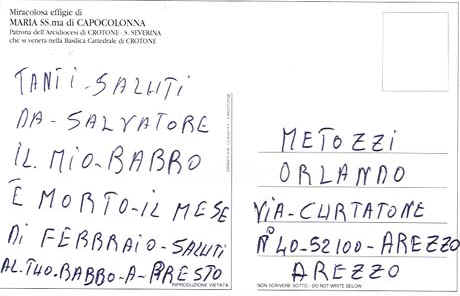 Miracolosa effigie di
MARIA SS.ma di CAPOCOLONNA
Patrona dell'Arcidiocesi di CROTONE - S. SEVERINA
che si venera nella Basilica Cattedrale di CROTONE
TANTI-SALUTI
DA-SALVATORE
IL.MIO-BABBO
E MORTO-IL MESE
DI FEBBRAIO-SALUTI
AL.TUO-BABBO-A-PRESTO
RIPRODUZIONE VIETATA
METOZZI
ORLANDO
VIA-CURTATONE
N° 40-52100-AREZZO
AREZZO
NON SCRIVERE SOTTO - DO NOT WRITE BELOW